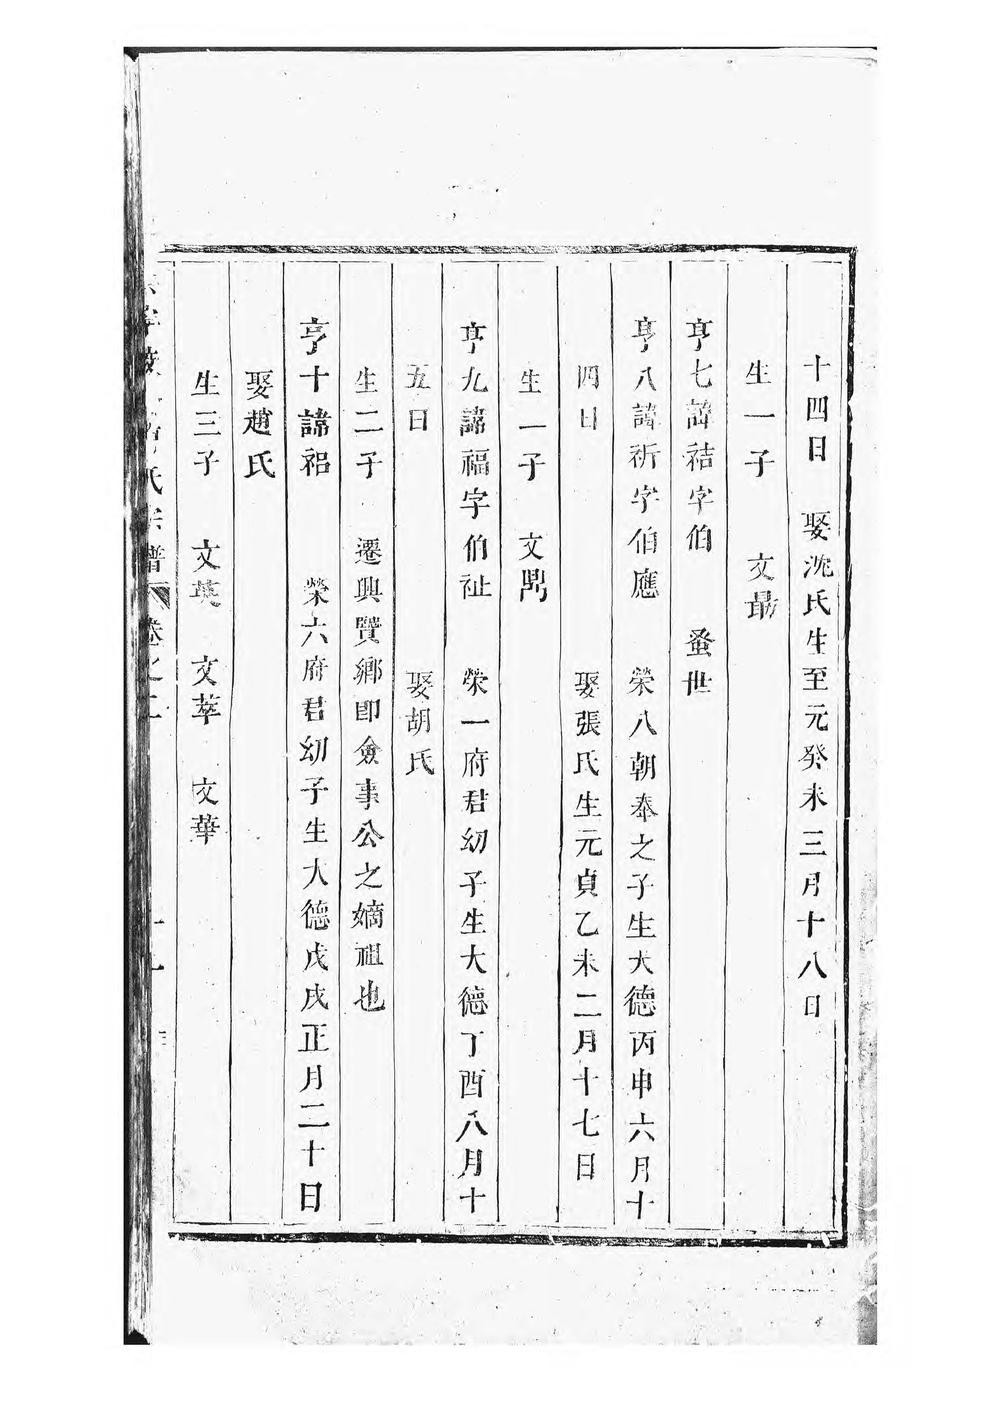 十四日　娶沈氏生至元癸未三月十八日
生一子　文最
亨七諱祮字伯　蚤世
亨八諱祈字伯應　榮八朝奉之子生大德丙申六月十
四日　娶張氏生元貞乙未二月十七日
生一子　文鼎
亨九諱福字伯祉　榮一府君幼子生大德丁酉八月十
五日　娶胡氏
生二子　遷興賢鄉即僉事公之嫡祖也
亨十諱祒　榮六府君幼子生大德戊戌正月二十日
娶趙氏
生三子　文英　文萃　文華
氏宗譜　卷之二